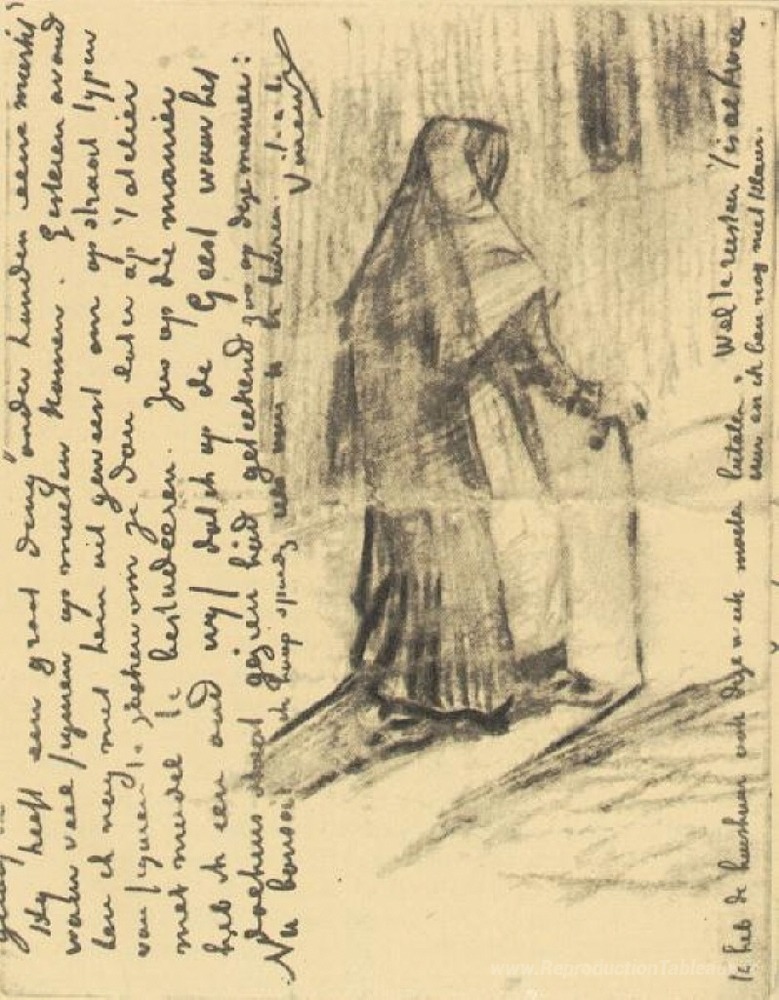 Hij heeft een groot ding onder handen eene
waar veel figuren op moeten komen. Gisteren avond
ben ik nog met hem uit geweest om op straat typen
van figuren te zoeken om ze dan later op 't atelier
met model te bestudeeren. Zoo op die manier
heb ik een oud wijf dat ik op de Geest waar het
dolhuis staat gezien heb geteekend zoo op deze manier:
Nu bonsoir ik hoop spoedig iets van u te hooren. t. à. t.
Vincent
Ik heb de huishuur ook deze week moeten betalen. Wel te rusten 't is al twee
uur en ik ben nog niet klaar.